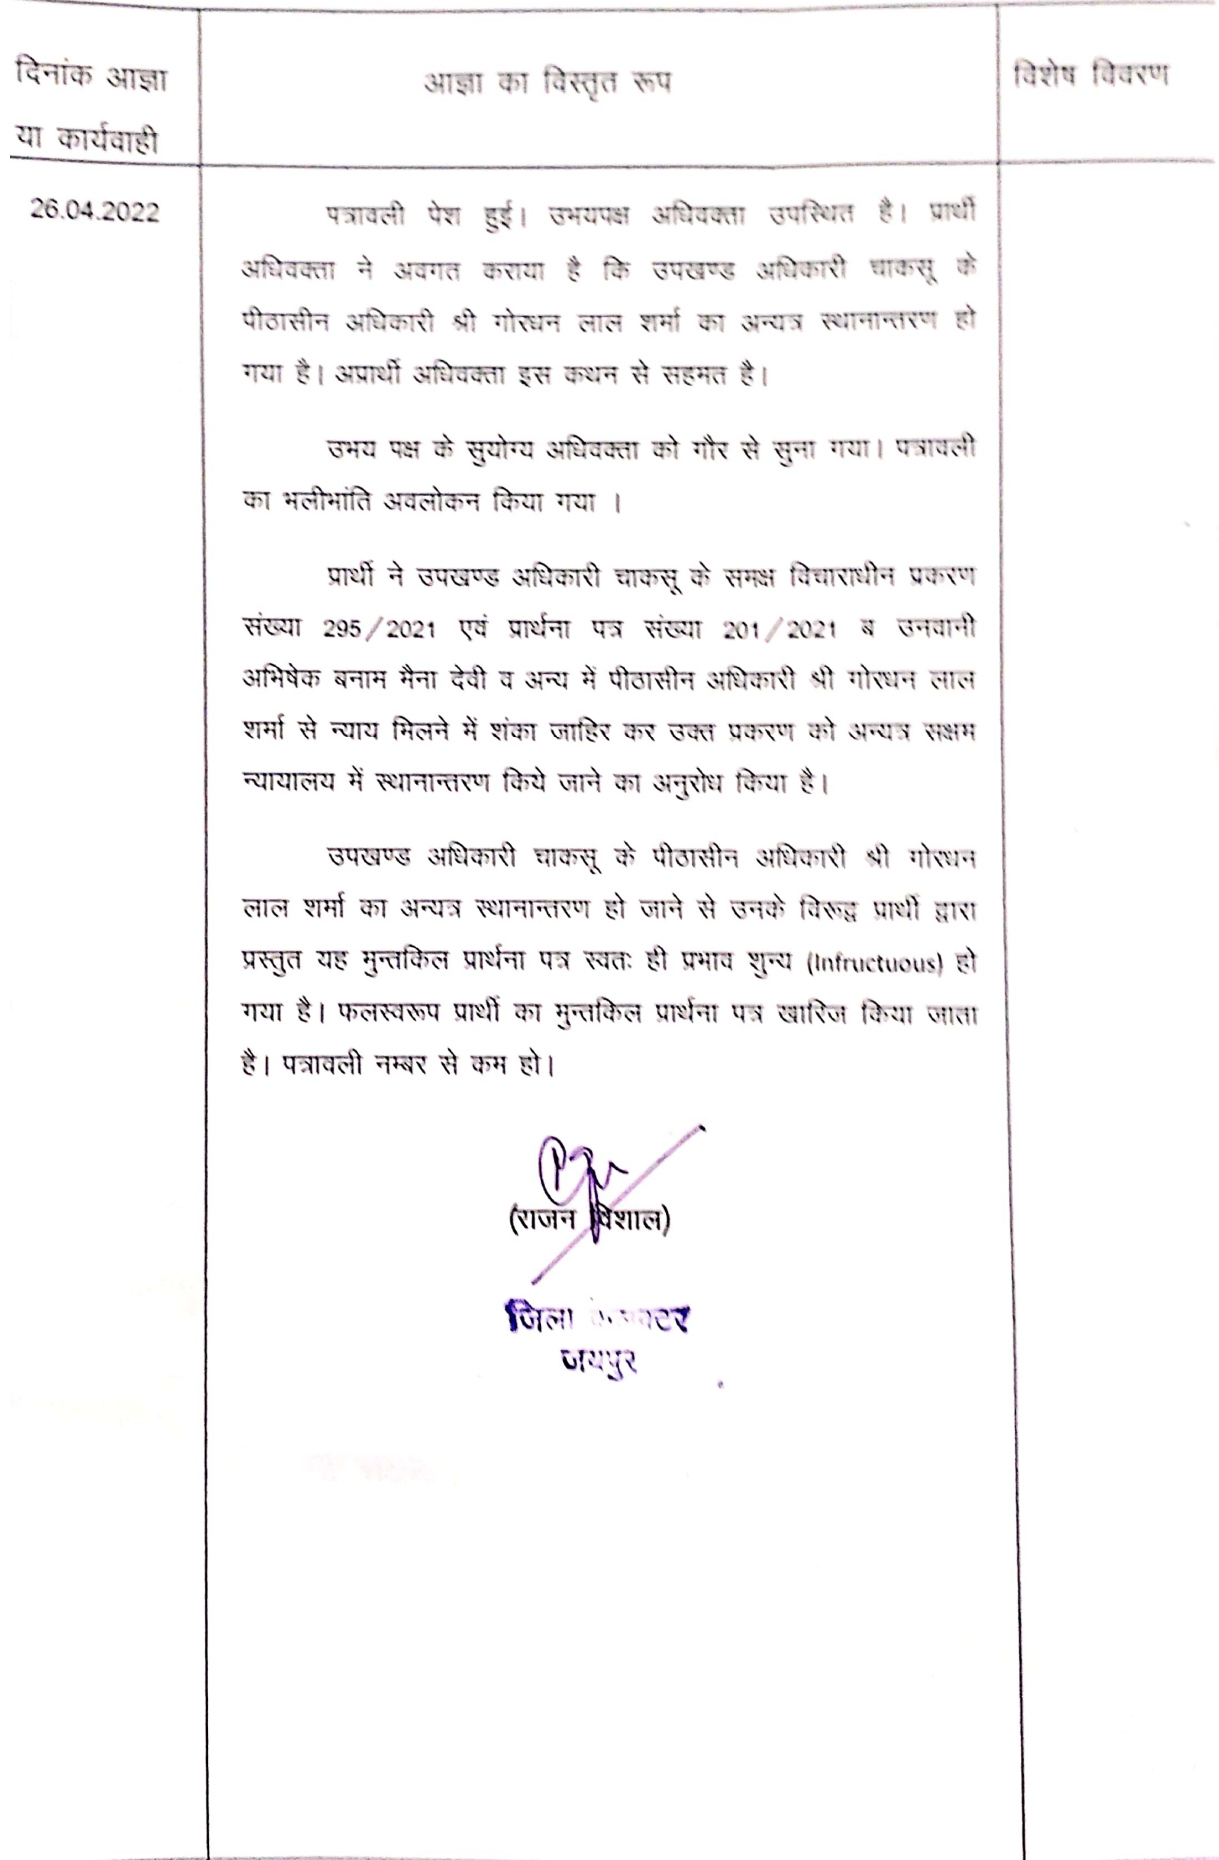 दिनांक आज्ञा
या कार्यवाही
आज्ञा का विस्तृत रूप
विशेष विवरण
26.04.2022
पत्रावली पेश हुई। उभयपक्ष अधिवक्ता उपस्थित है। प्रार्थी
अधिवक्ता ने अवगत कराया है कि उपखण्ड अधिकारी चाकसू के
पीठासीन अधिकारी श्री गोरधन लाल शर्मा का अन्यत्र स्थानान्तरण हो
गया है। अप्रार्थी अधिवक्ता इस कथन से सहमत है।
उभय पक्ष के सुयोग्य अधिवक्ता को गौर से सुना गया। पत्रावली
का भलीभांति अवलोकन किया गया ।
प्रार्थी ने उपखण्ड अधिकारी चाकसू के समक्ष विचाराधीन प्रकरण
संख्या 295/2021 एवं प्रार्थना पत्र संख्या 201/2021 ब उनवानी
अभिषेक बनाम मैना देवी व अन्य में पीठासीन अधिकारी श्री गोरधन लाल
शर्मा से न्याय मिलने में शंका जाहिर कर उक्त प्रकरण को अन्यत्र सक्षम
न्यायालय में स्थानान्तरण किये जाने का अनुरोध किया है।
उपखण्ड अधिकारी चाकसू के पीठासीन अधिकारी श्री गोरधन
लाल शर्मा का अन्यत्र स्थानान्तरण हो जाने से उनके विरूद्व प्रार्थी द्वारा
प्रस्तुत यह मुन्तकिल प्रार्थना पत्र स्वतः ही प्रभाव शुन्य (Infructuous) हो
गया है। फलस्वरूप प्रार्थी का मुन्तकिल प्रार्थना पत्र खारिज किया जाता
है। पत्रावली नम्बर से कम हो।
(राजन विशाल)
जिला
जयपुर